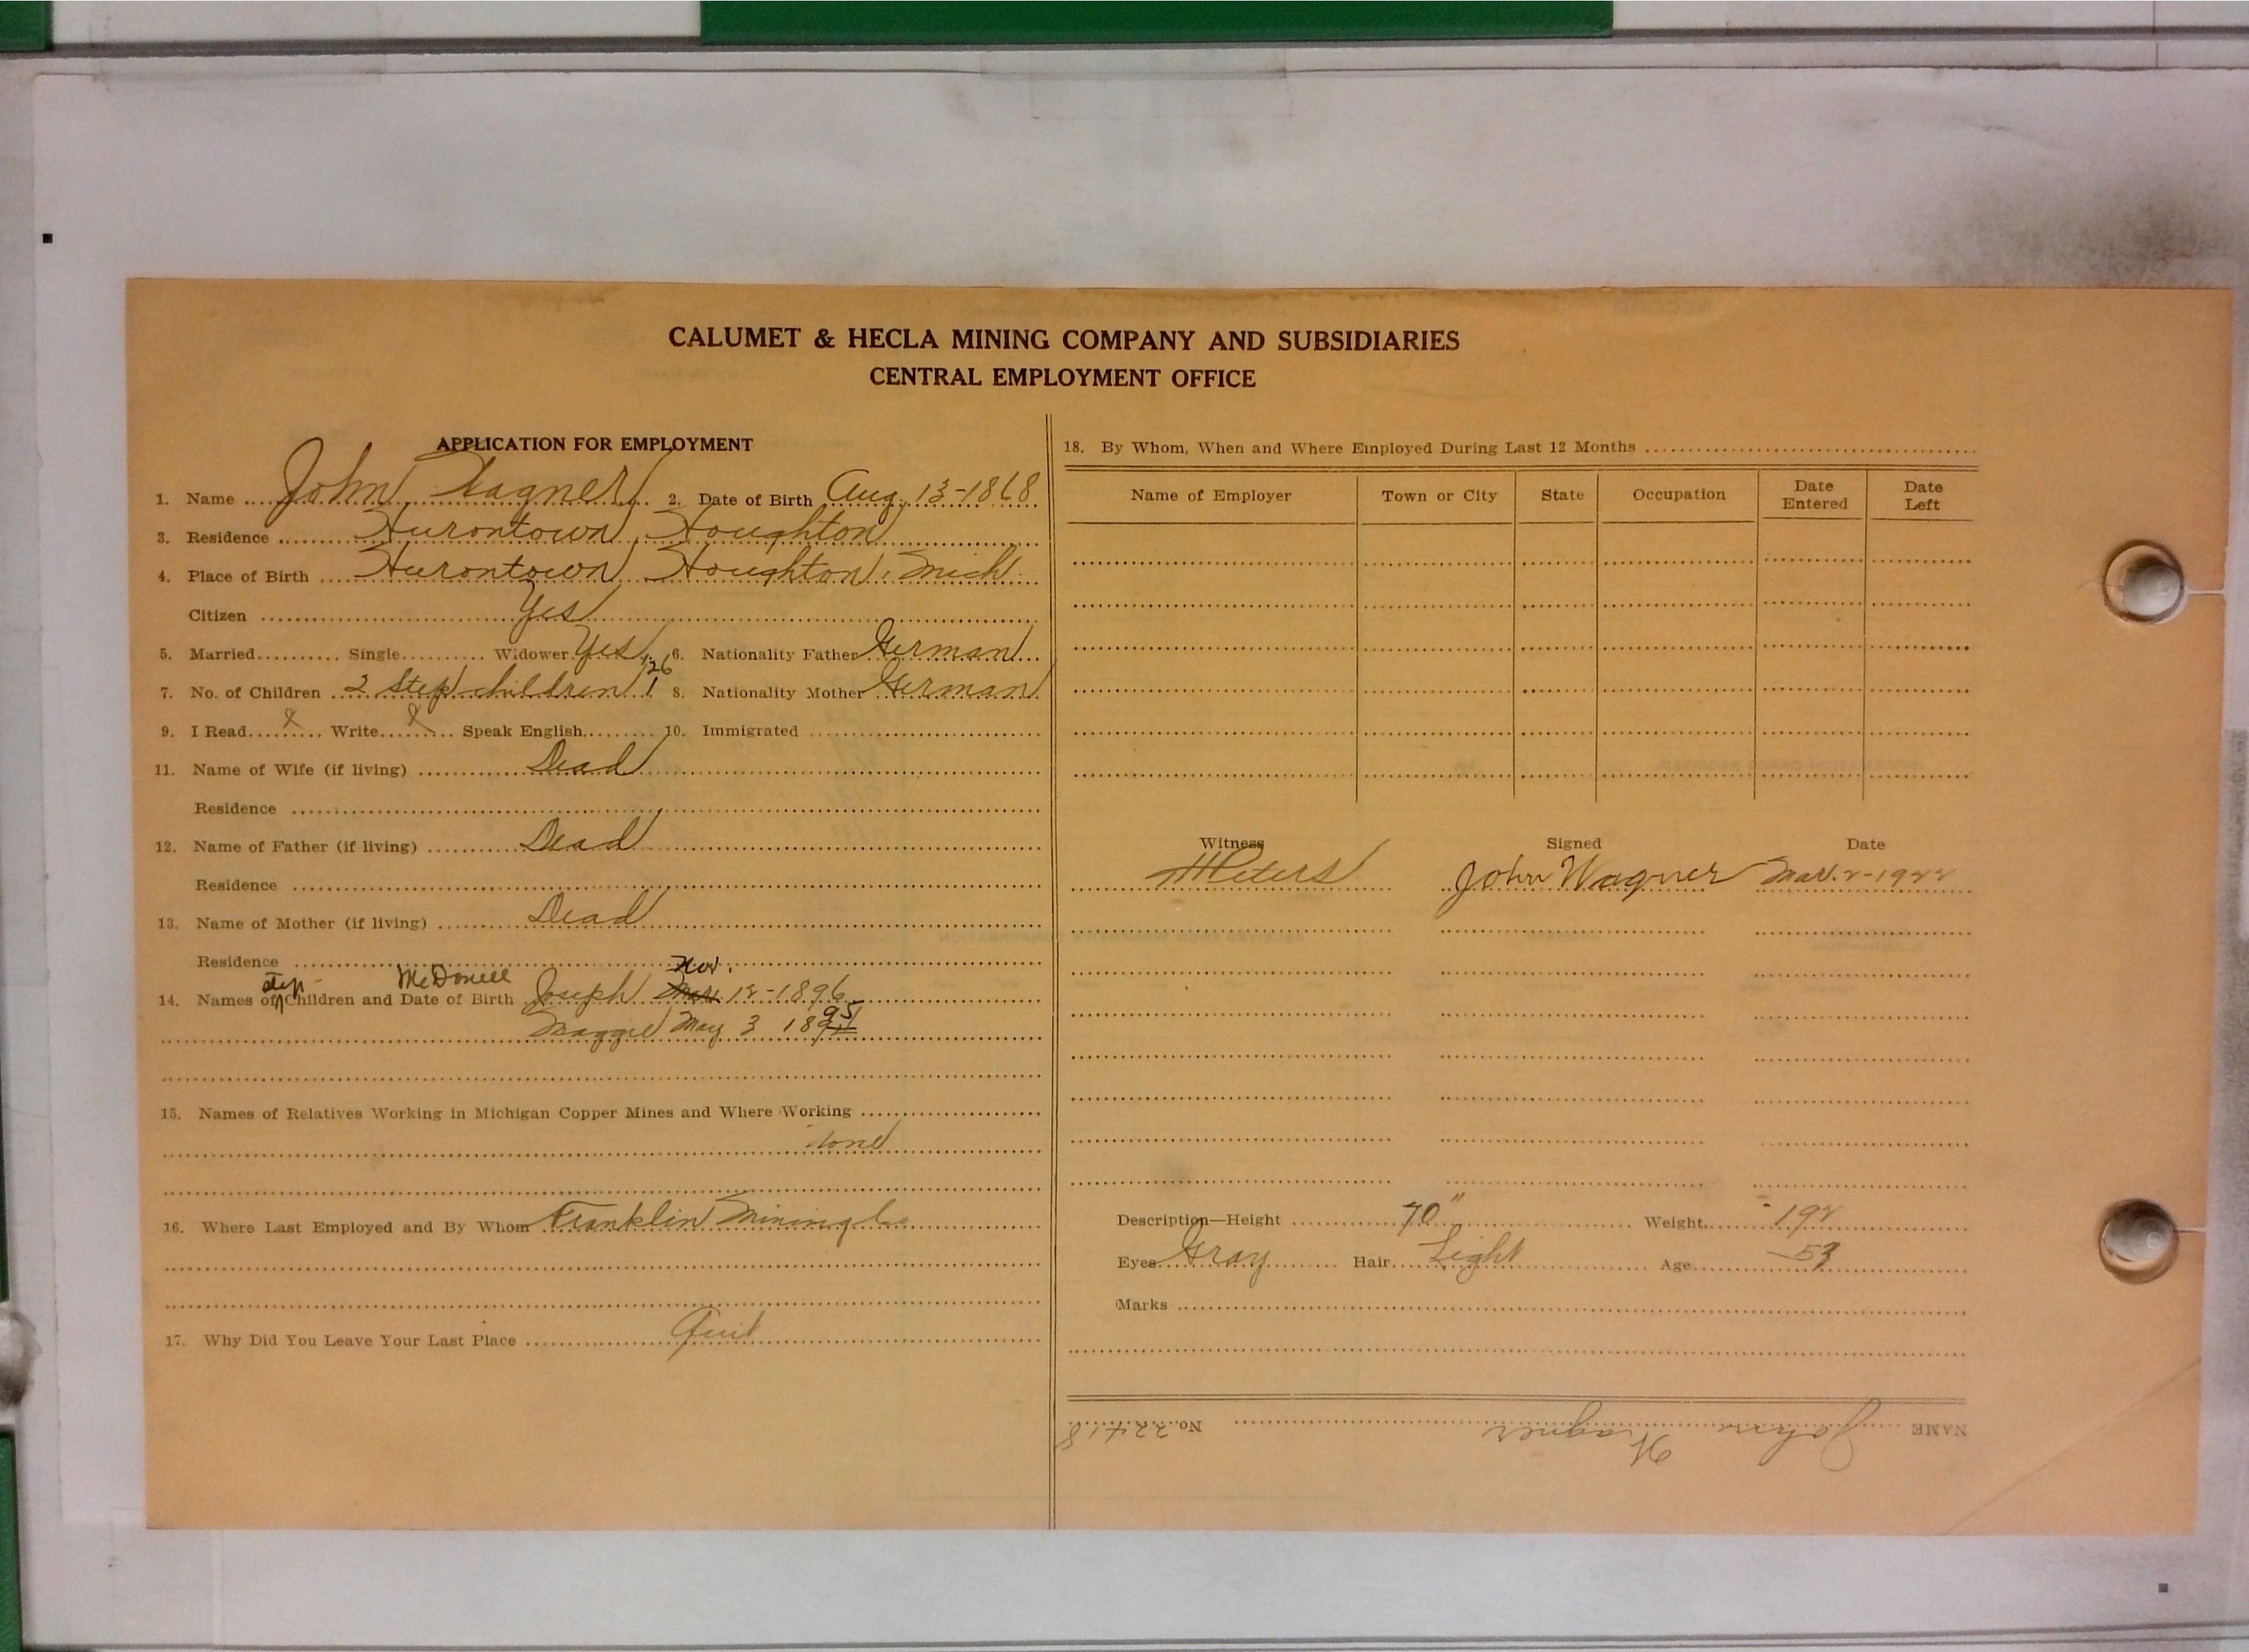 CALUMET & HECLA MINING COMPANY AND SUBSIDIARIES
CENTRAL EMPLOYMENT OFFICE
APPLICATION FOR EMPLOYMENT
1. Name John Wagner 2. Date of Birth Aug. 13-1868
3. Residence Hurontown, Houghton
4. Place of Birth Hurontown Houghton, Mich.
Citizen Yes
5. Married Single Widower Yes 6. Nationality Father German
7. No. of Children 2 Step children 8. Nationality Mother German
9. I Read X Write X Speak English 10. Immigrated
11. Name of Wife (if living) Dead
Residence
12. Name of Father (if living) Dead
Residence
13. Name of Mother (if living) Dead
Residence
14. Names of step Children and Date of Birth McDonell Joseph Nov. 12-1896
Maggie May 3 1895
15. Names of Relatives Working in Michigan Copper Mines and Where Working
None
16. Where Last Employed and By Whom Franklin Mining Co
17. Why Did You Leave Your Last Place Quit
18. By Whom, When and Where Employed During Last 12 Months
Name of Employer Town or City State Occupation Date Entered Date Left
Witness Signed Date
Peters John Wagner Mar. 2-1922
Description—Height 70" Weight 192
Eyes Gray Hair Light Age 53
Marks
NAME John Wagner No. 22418